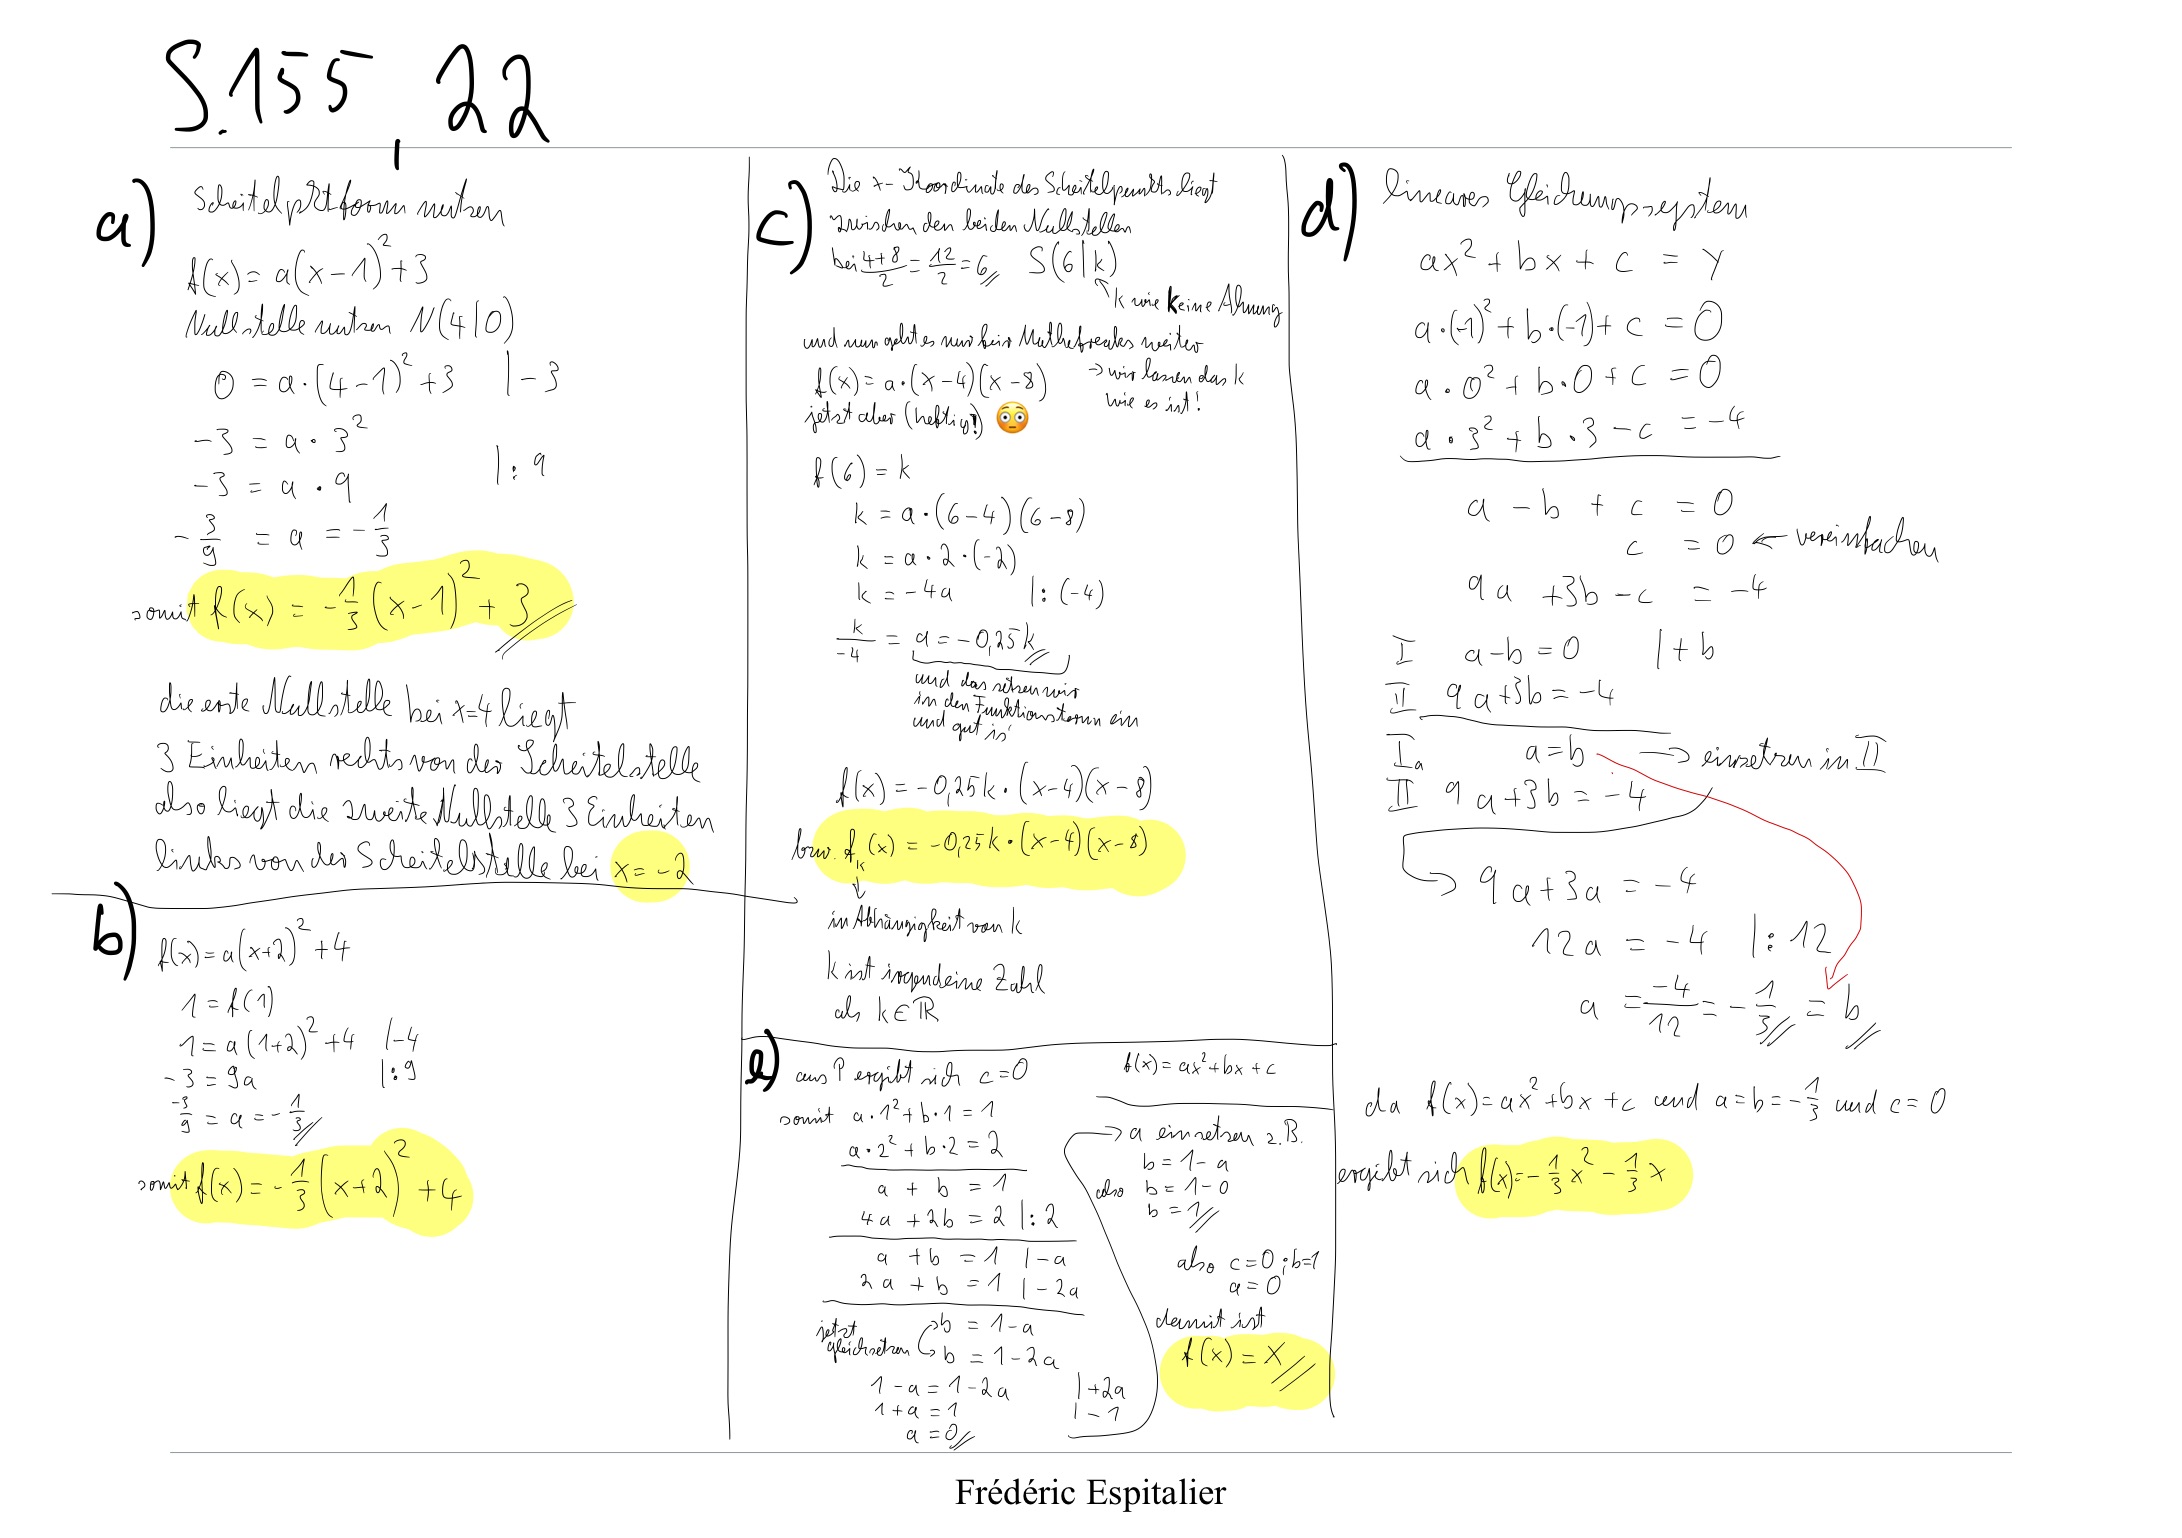 S.155, 22
a)
Scheitelpktform nutzen
f(x) = a(x-1)² + 3
Nullstelle nutzen N(4|0)
0 = a·(4-1)² + 3 |-3
-3 = a · 3²
-3 = a · 9 |: 9
-3/9 = a = -1/3
somit f(x) = -1/3 (x-1)² + 3
die erste Nullstelle bei x=4 liegt
3 Einheiten rechts von der Scheitelstelle
also liegt die zweite Nullstelle 3 Einheiten
links von der Scheitelstelle bei x = -2
b)
f(x) = a(x+2)² + 4
1 = f(1)
1 = a(1+2)² + 4 |-4
-3 = 9a |:9
-3/9 = a = -1/3
somit f(x) = -1/3 (x+2)² + 4
c)
Die x-Koordinate des Scheitelpunkts liegt
zwischen den beiden Nullstellen
bei 4+8/2 = 12/2 = 6 S(6|k)
k wie keine Ahnung
und nun geht es nur für Mathefreaks weiter
f(x) = a·(x-4)(x-8) → wir lassen das k
wie es ist!
jetzt aber (heftig!) 😳
f(6) = k
k = a·(6-4)(6-8)
k = a · 2 · (-2)
k = -4a |: (-4)
k/-4 = a = -0,25k
und das setzen wir
in den Funktionsterm ein
und gut is'
f(x) = -0,25k · (x-4)(x-8)
bzw. fₖ(x) = -0,25k · (x-4)(x-8)
↓
in Abhängigkeit von k
k ist irgendeine Zahl
als k∈ℝ
e)
aus P ergibt sich c=0
f(x) = ax²+bx+c
somit a·1²+b·1 = 1
a·2²+b·2 = 2
a + b = 1
4a + 2b = 2 |: 2
a + b = 1 |-a
2a + b = 1 |-2a
jetzt
gleichsetzen
b = 1-a
b = 1-2a
1-a = 1-2a |+2a
1+a = 1 |-1
a = 0
→ a einsetzen z.B.
b = 1-a
also b = 1-0
b = 1
also c=0; b=1
a=0
damit ist
f(x) = x
d)
lineares Gleichungssystem
ax² + bx + c = y
a·(-1)² + b·(-1) + c = 0
a · 0² + b·0 + c = 0
a · 3² + b · 3 - c = -4
a - b + c = 0
c = 0 ← vereinfachen
9a + 3b - c = -4
I a-b = 0 |+b
II 9a+3b = -4
Iₐ a=b → einsetzen in II
II 9a+3b = -4
9a+3a = -4
12a = -4 |: 12
a = -4/12 = -1/3 = b
da f(x) = ax²+bx+c und a=b=-1/3 und c=0
ergibt sich f(x) = -1/3 x² - 1/3 x
Frédéric Espitalier